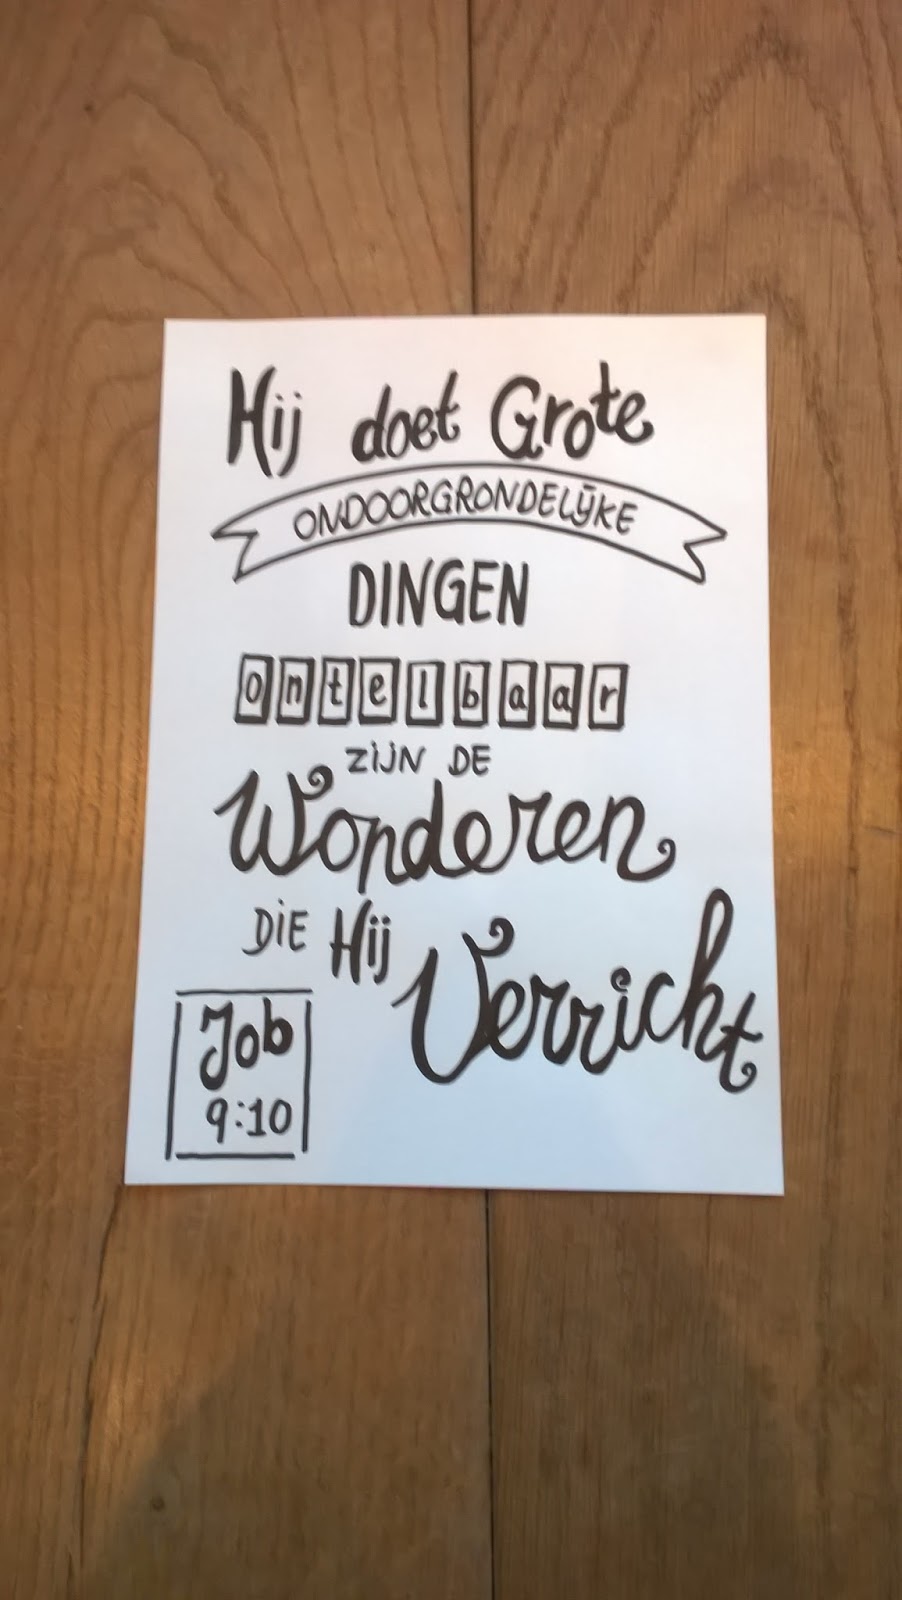 Hij doet Grote
ONDOORGRONDELIJKE
DINGEN
ontelbaar
ZIJN DE
Wonderen
DIE Hij Verricht
Job
9:10